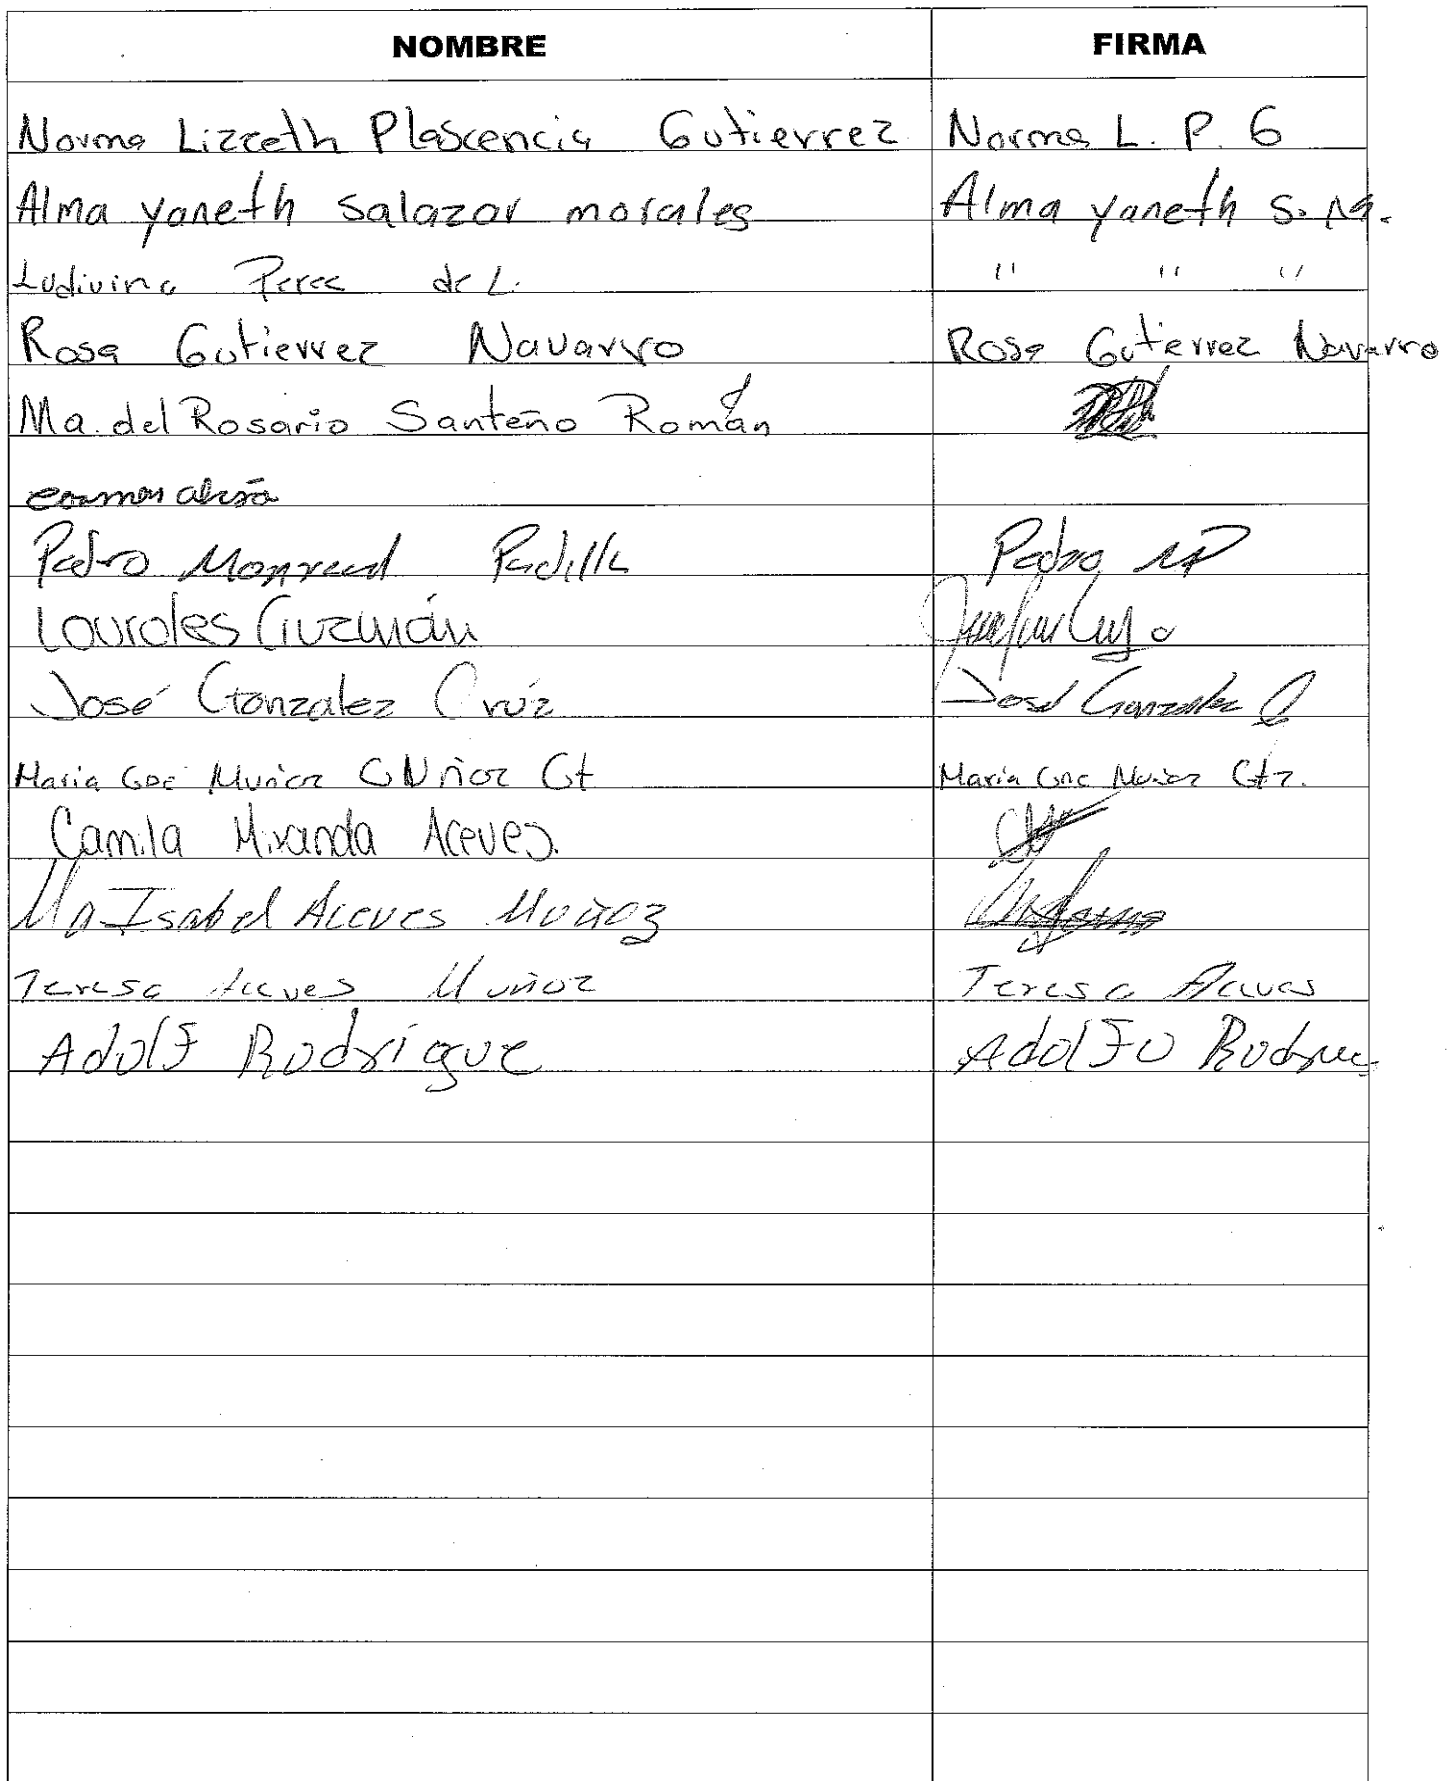 NOMBRE FIRMA
Norma Lizceth Plascencia Gutierrez Norma L. P. G
Alma yaneth salazar morales Alma yaneth S. M.
Ludivina Perez de L. " " "
Rosa Gutierrez Navarro Rosa Gutierrez Navarro
Ma. del Rosario Santeño Román
Pedro Monreal Padilla Pedro MP
Lourdes Guzmán
José Gonzalez Crúz José Gonzalez C
Maria Muñoz Maria Muñoz Gtz.
Camila Miranda Aceves.
Ma Isabel Aceves Muñoz
Teresa Aceves Muñoz Teresa Aceves
Adolf Rodrigue Adolfo